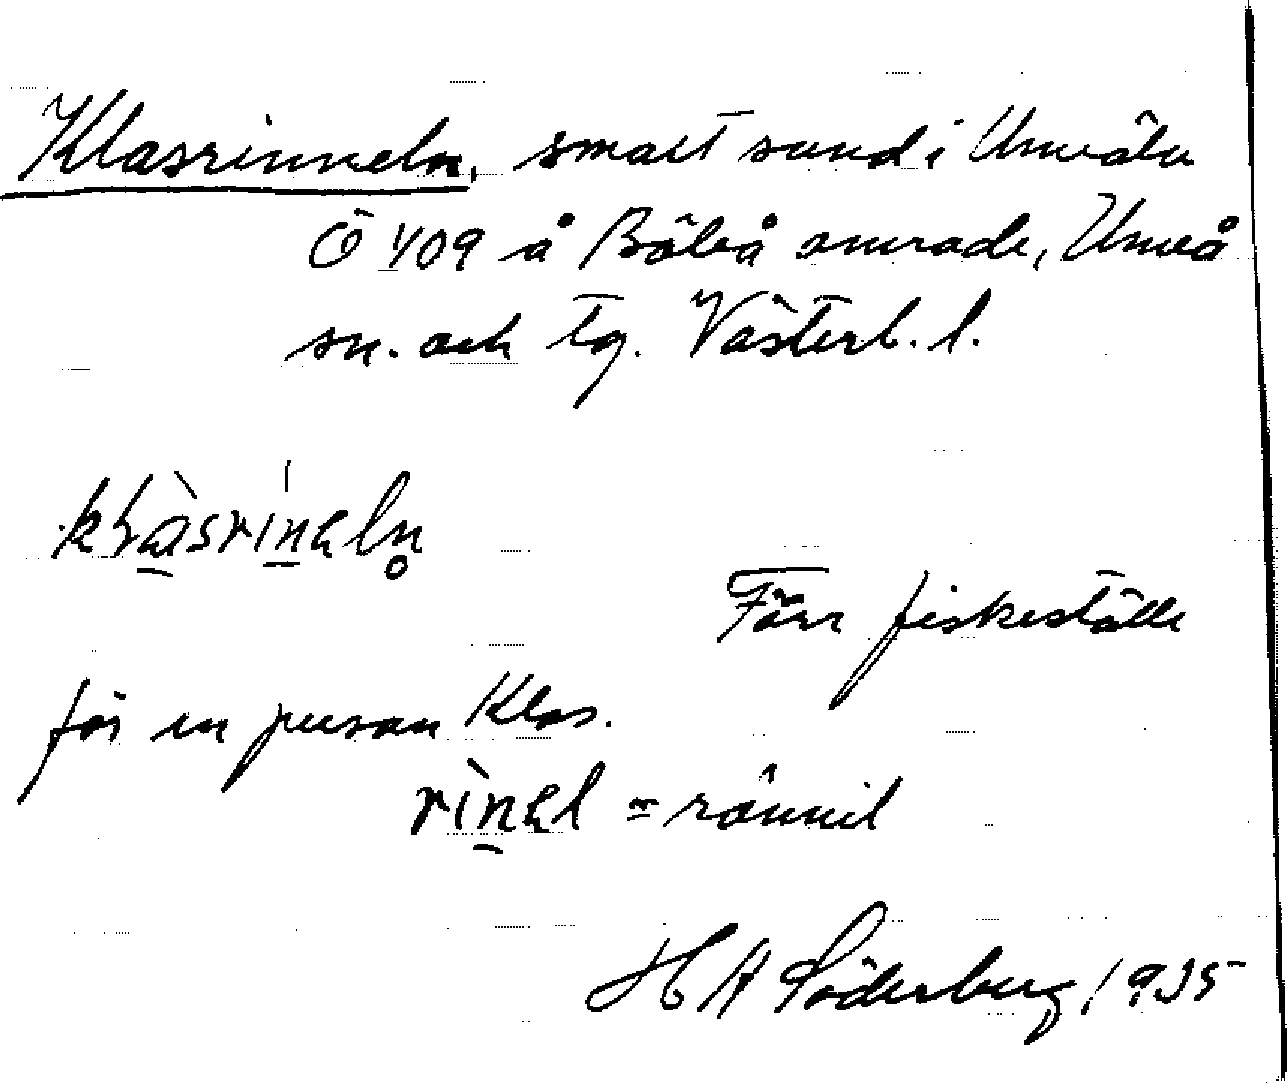 Klasrinneln, smalt sund i Umeälv
Ö 409 å Böleå område, Umeå
sn. och tg. Västerb. l.
klàsrinəln̥
Förr fiskeställe
för en person Klas.
rìnəl = rännil
H A Söderberg, 1935